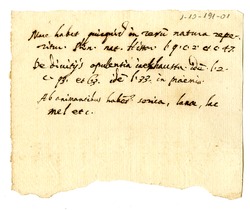 1-13-191-01
Nunc habet quicquid in rerum natura repe-
ritur. Plin. nat. Histor. l. 9. c. 2 et c. 43.
De divitijs opulentia inexhausta. idem l. 2.
c. 93. et 63. idem l. 33. in proemio.
Ab animantibus habet. sonica, lana, lac
mel etc.